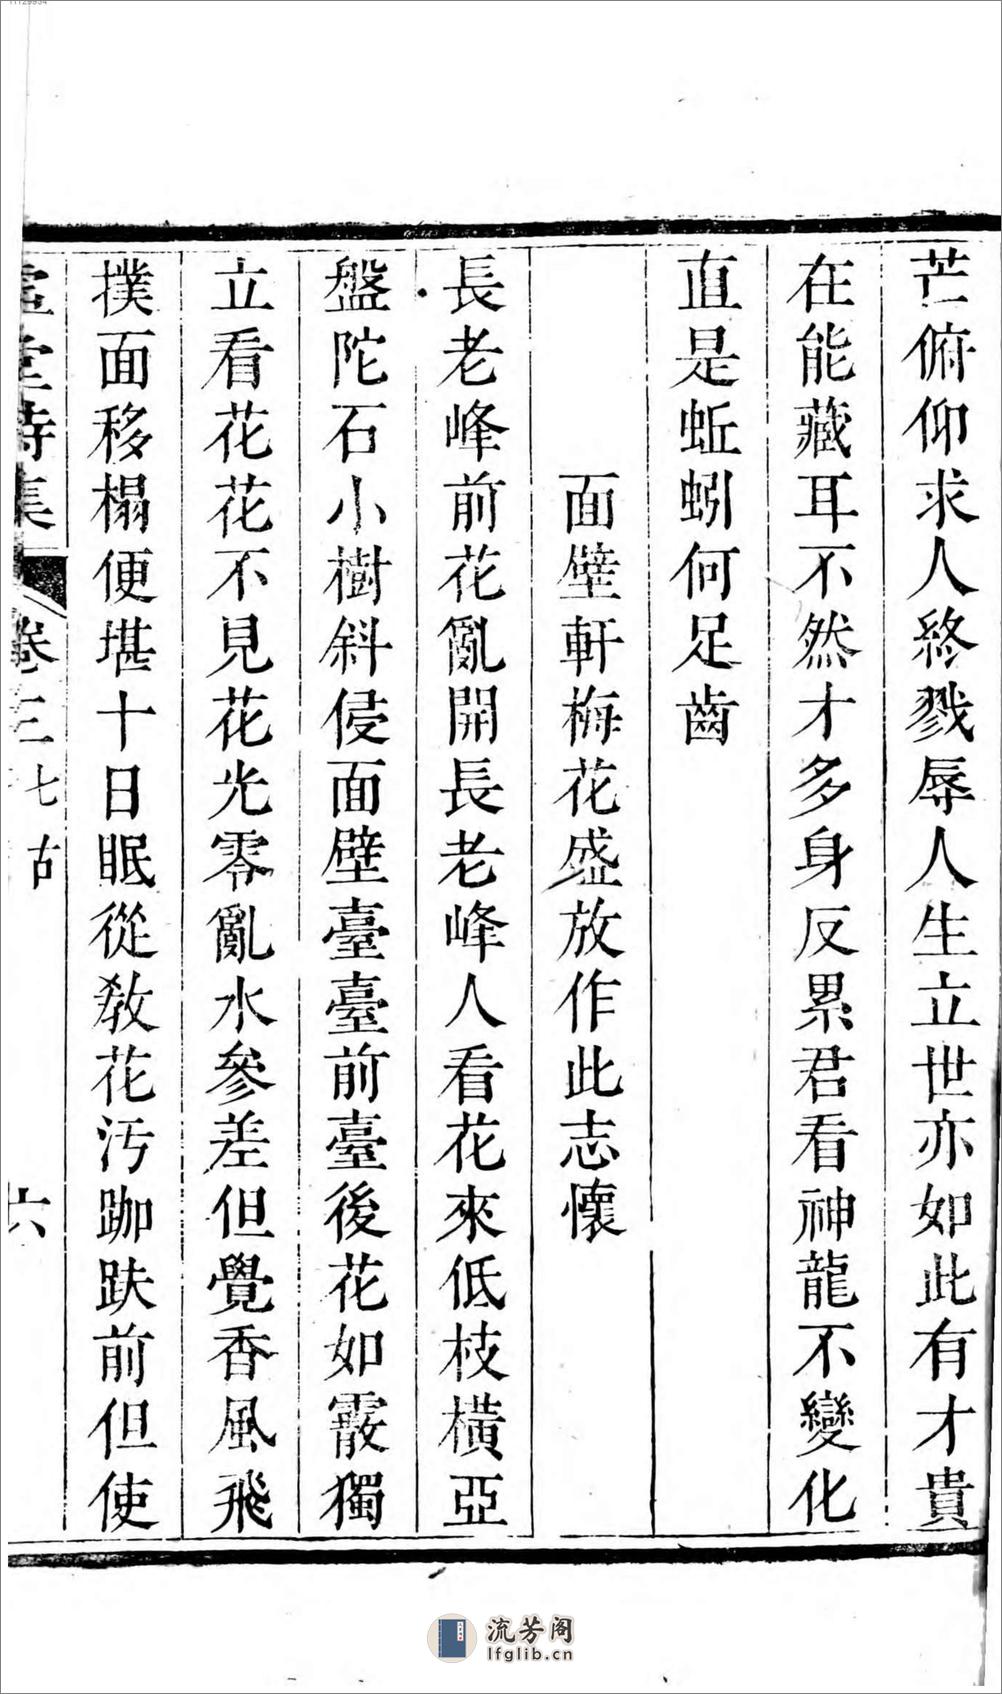 芒俯仰求人終戮辱人生立世亦如此有才貴
在能藏耳不然才多身反累君看神龍不變化
直是蚯蚓何足齒
面壁軒梅花盛放作此志懷
長老峰前花亂開長老峰人看花來低枝橫亞
盤陀石小樹斜侵面壁臺臺前臺後花如霰獨
立看花花不見花光零亂水參差但覺香風飛
撲面移榻便堪十日眠從教花汚跏趺前但使
堂詩集
卷三七古
六
流芳阁
lfglib.cn